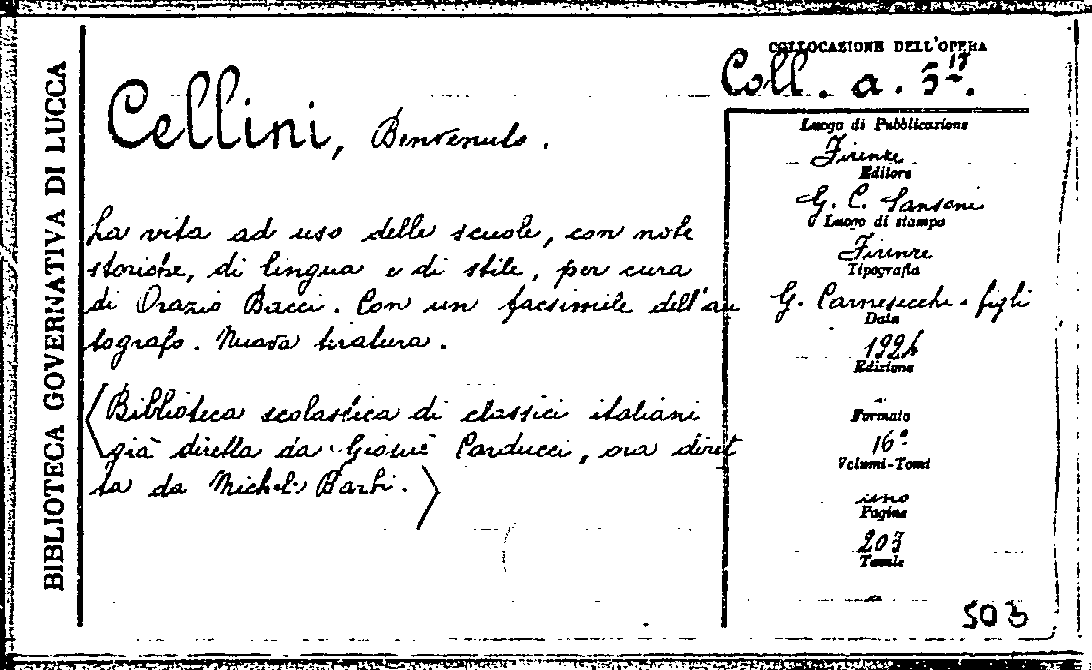 BIBLIOTECA GOVERNATIVA DI LUCCA
Cellini, Benvenuto.
La vita ad uso delle scuole, con note
storiche, di lingua e di stile, per cura
di Orazio Bacci. Con un facsimile dell'au
tografo. Nuova tiratura.
(Biblioteca scolastica di classici italiani
già diretta da Giosuè Carducci, ora diret
ta da Michele Barbi.)
COLLOCAZIONE DELL'OPERA
Coll. a. 5
Luogo di Pubblicazione
Firenze
Editore
G. C. Sansoni
Luogo di stampa
Firenze
Tipografia
G. Carnesecchi e figli
Data
1924
Edizione
Formato
16°
Volumi-Tomi
uno
Pagine
203
Tavole
503